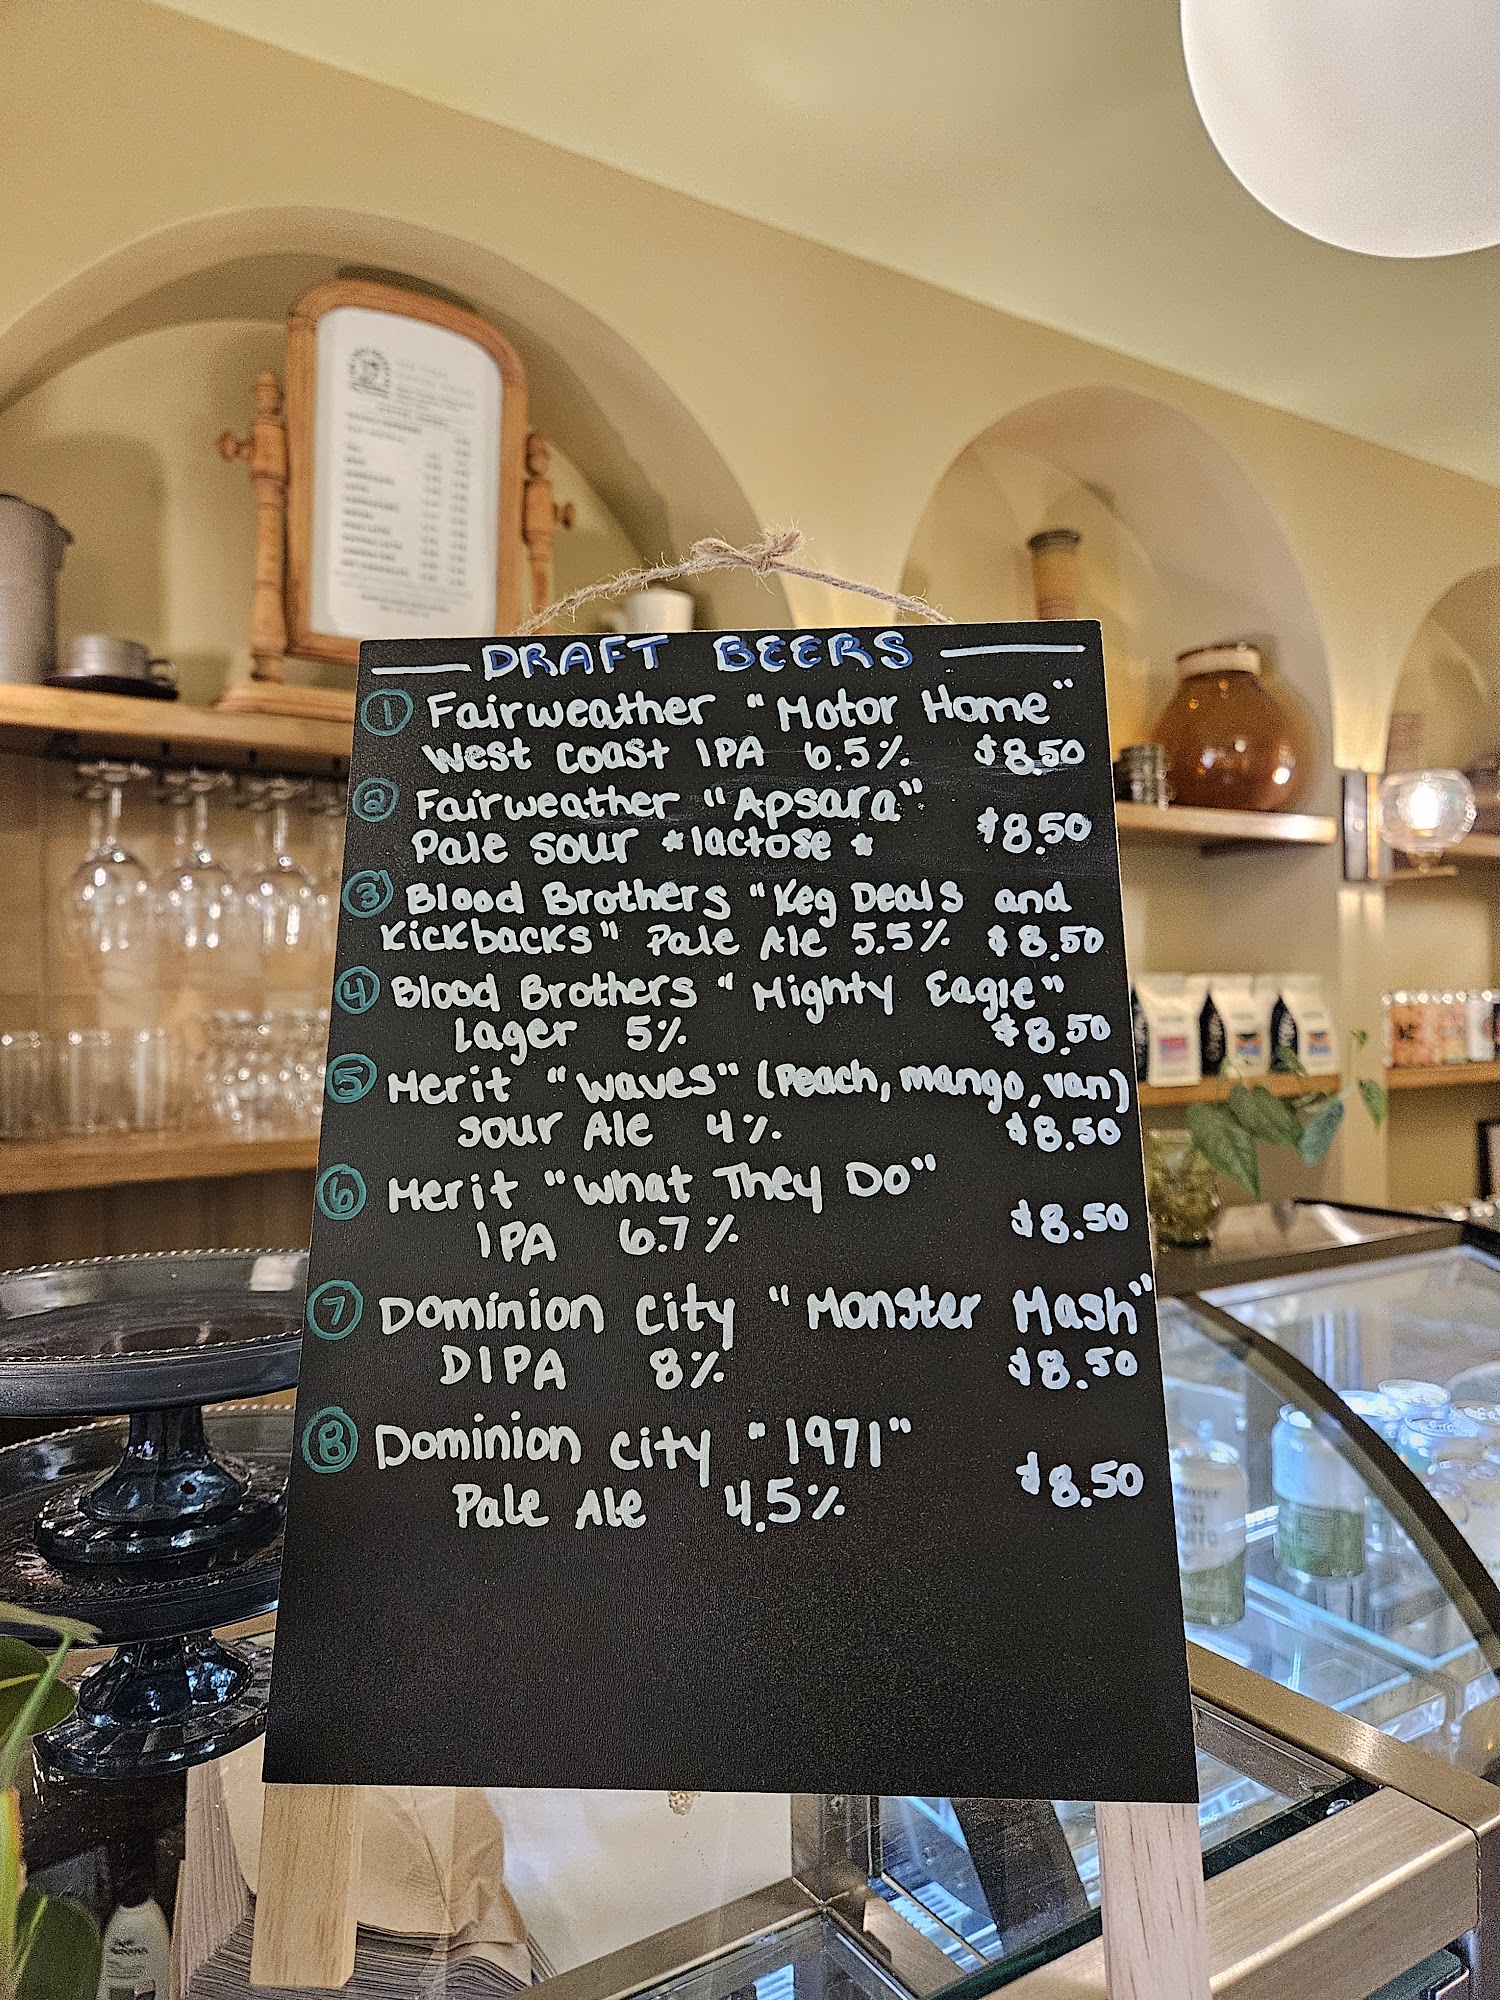 DRAFT BEERS
1 Fairweather "Motor Home"
West Coast IPA 6.5% $8.50
2 Fairweather "Apsara"
Pale sour *lactose * $8.50
3 Blood Brothers "Keg Deals and
Kickbacks" Pale Ale 5.5% $8.50
4 Blood Brothers "Mighty Eagle"
Lager 5% $8.50
5 Merit "Waves" (Peach, mango, van)
Sour Ale 4% $8.50
6 Merit "What They Do"
IPA 6.7% $8.50
7 Dominion City "Monster Mash"
DIPA 8% $8.50
8 Dominion City "1971"
Pale Ale 4.5% $8.50